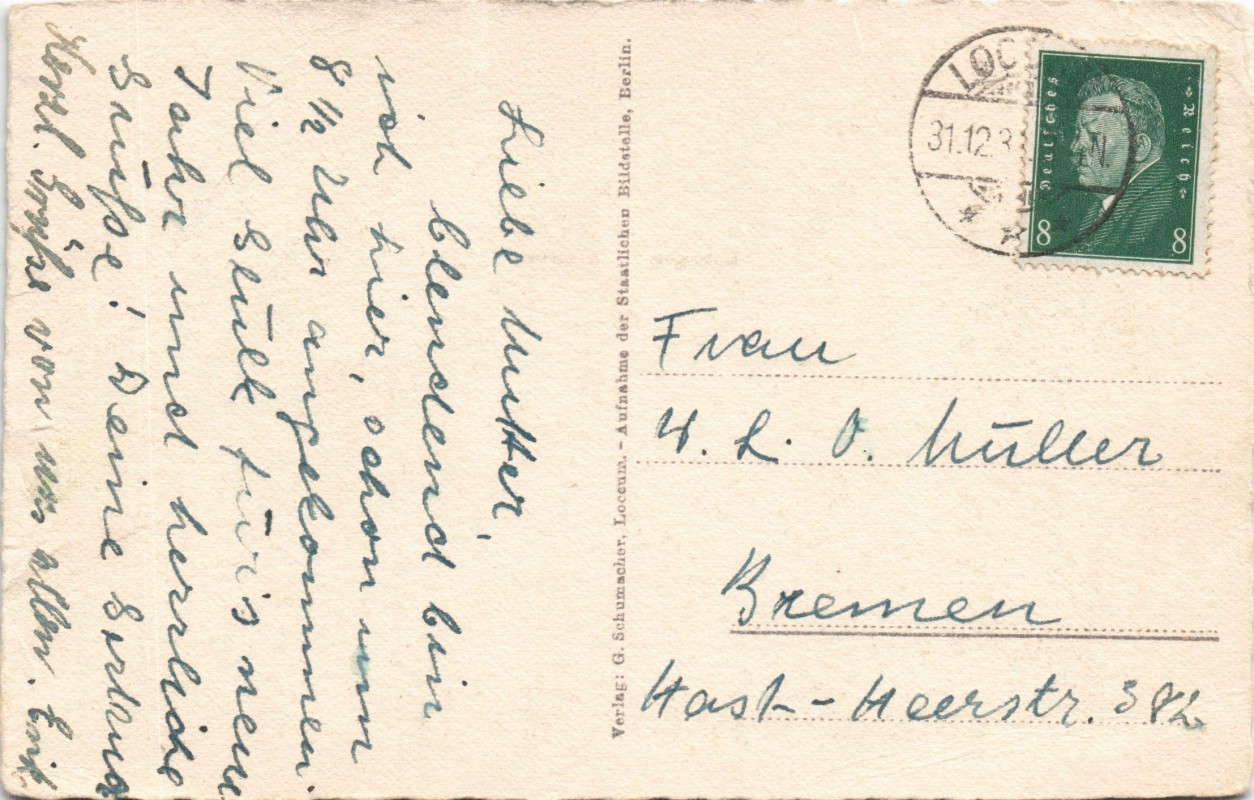 Liebe Mutter,
blendend bin
ich hier, schon um
8 1/2 Uhr angekommen.
Viel Glück für's neue
Jahr und herrliche
Grüße! Deine
Herzl. Grüße von uns allen.
Verlag: G. Schumacher, Loccum. - Aufnahme der Staatlichen Bildstelle, Berlin.
LOC
31.12.3
N.
Deutsches Reich
8 8
Frau
H. L. O. Müller
Bremen
Hast-Heerstr. 382